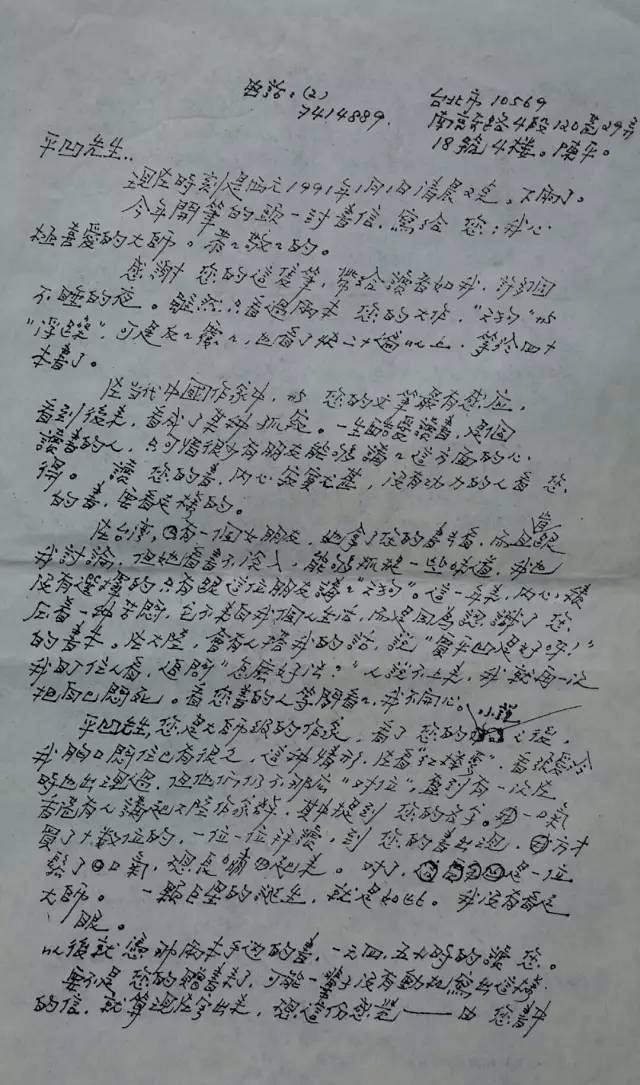 电话：(2) 台北市 10569
7414889. 南京東路4段120巷29弄
18號4楼。陳平。
平凹先生：
現在時刻是西元1991年1月1日清晨2点。下雨了。
今年開筆的頭一封書信，寫給您：我心
極喜愛的大師。恭恭敬敬的。
感謝您的這支筆，帶給讀者如我，許多個
不睡的夜。雖然只看過兩本您的大作，"天狗"以
"浮躁"，可是反反覆覆，也看了快二十遍以上，等於四十
本書了。
在当代中國作家中，以您的文筆最有感应，
看到後来，看成了某种孤寂。一生酷愛讀書，是個
讀書的人，只可惜很少有朋友能够講講這方面的心
得。讀您的書，内心寂寞尤甚，没有功力的人看您
的書，要看走樣的。
在台湾，有一個女朋友，她拿了您的書去看，而且肯跟
我討論，但她看書不深入，能够抓捉一些味道，我也
没有選擇的只有跟這位朋友講講"天狗"。這一年来，内心積
压着一种苦悶，它不来自我個人生活，而是因為認識了您
的書本。在大陸，會有人搭我的話，說"賈平凹是好呀！"
我盯住人看，追問"怎麼好法？"人說不上来，我就再一次
把自己悶死。看您書的人等閒看看，我不開心。
平凹先生，您是大師級的作家，看了您的小說之後，
我胸口悶住已有很久，這种情形，在看"红樓夢"，看張愛玲
時也出現過，但他們仍不那应"对位"，直到有一次在
香港有人講起大陸作家群，其中提到您的名字。一口氣
買了十數位的，一位一位拜讀，到您的書出現，方才
鬆了口氣，想長啸起来。对了，是一位
大師。一顆巨星的誕生，就是如此。我没有看走
眼。
以後就憑那兩本手边的書，一天四、五小時的讀您。
要不是您的贈書来了，可能一輩子没有動机寫出這樣
的信，就算現在寫出来，想這份感觉——由您書中